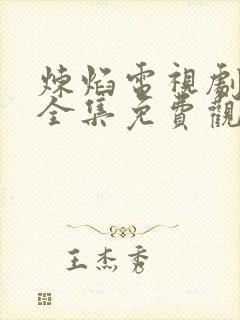 煉焰電視劇
全集免費觀
王杰秀